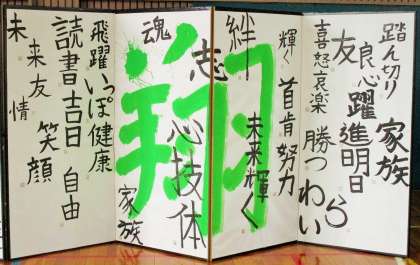 踏ん切り
家族
良心
躍進
明日
友
喜怒哀楽
勝つ
輝く
首肯
努力
絆
未来輝く
翔
志
心技体
魂
家族
飛躍
健康
読書
吉日
自由
未来
友情
笑顔